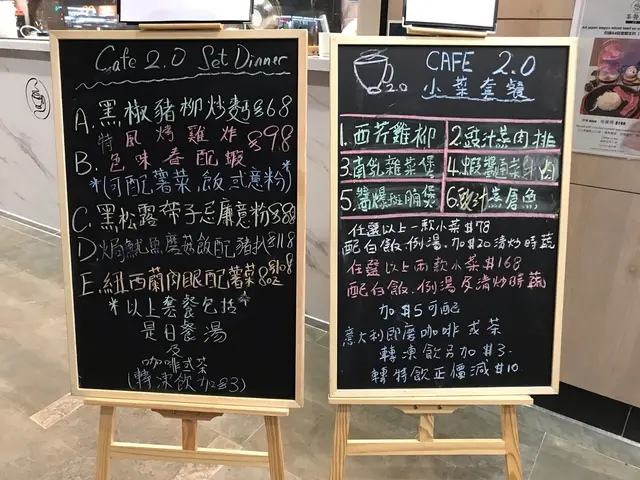 Cafe 2.0 Set Dinner
A. 黑椒豬柳炒麵 $68
特
風烤雞炸 $98
B. 色味香配蝦
*(可配薯菜,飯或意粉)*
C. 黑松露帶子忌廉意粉 $88
D. 焗魷魚蘑菇飯配豬扒 $118
E. 紐西蘭肉眼配薯菜 8oz $108
*以上套餐包括*
是日餐湯
及
咖啡或茶
(轉凍飲加$3)
2.0
CAFE 2.0
小菜套餐
1. 西芹雞柳
2. 豉汁蒸肉排
3. 南乳雜菜煲
4. 蝦醬通菜牛肉
5. 醬爆斑腩煲
6. 豉汁蒸倉魚
任選以上一款小菜 $78
配白飯.例湯.加$20清炒時蔬
任選以上兩款小菜 $168
配白飯.例湯及清炒時蔬
加$5可配
意大利即磨咖啡或茶
轉凍飲另加$3-
轉特飲正價減$10